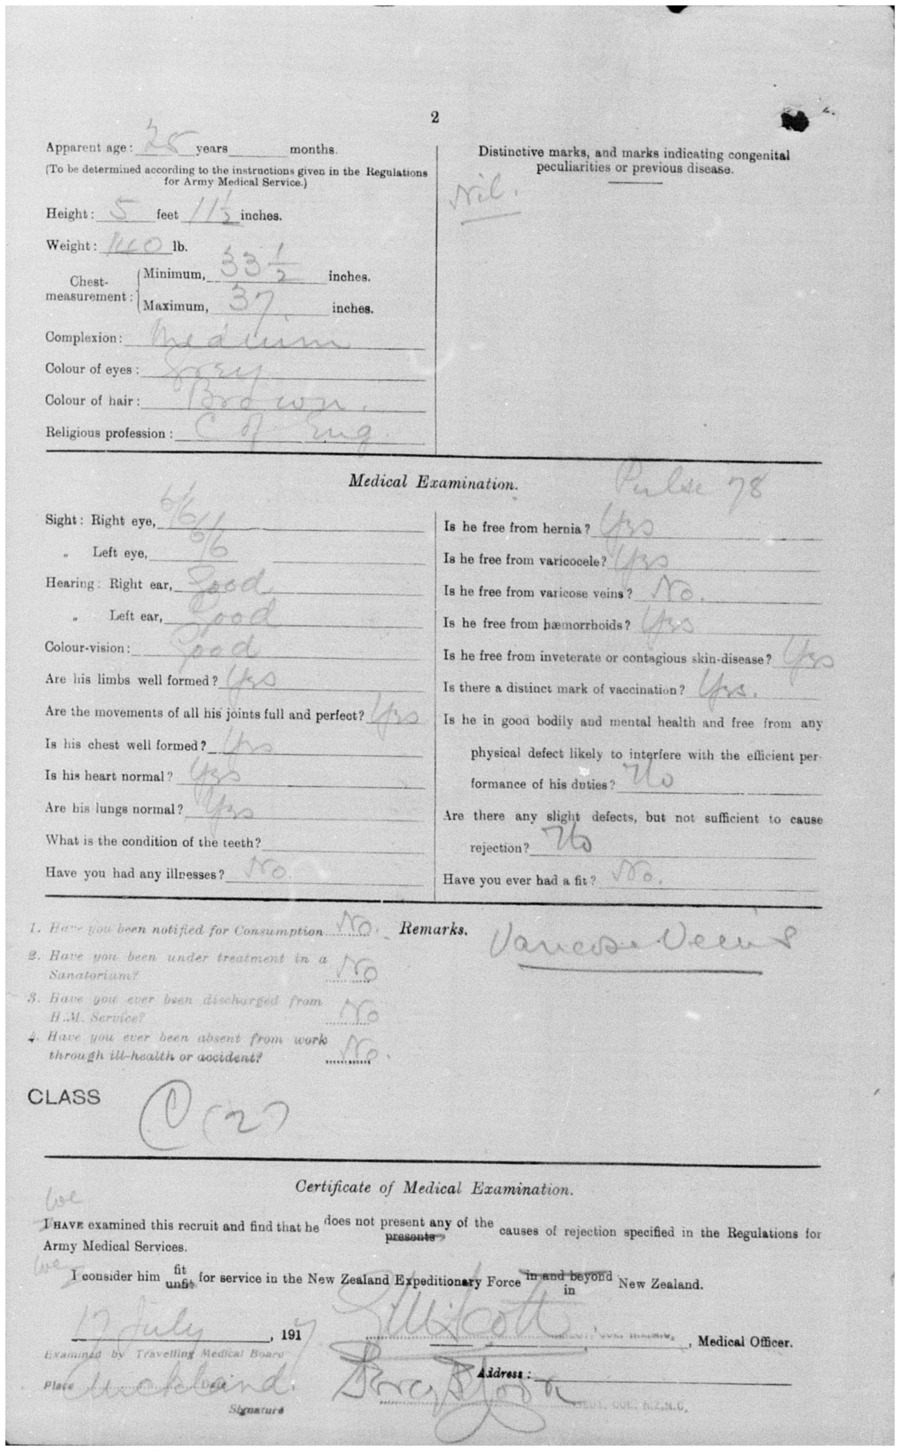 2
Apparent age: 25 years months.
(To be determined according to the instructions given in the Regulations
for Army Medical Service.)
Height: 5 feet 11½ inches.
Weight: 140 lb.
Chest-measurement: Minimum, 33 ½ inches.
Maximum, 37 inches.
Complexion: Medium
Colour of eyes: Grey
Colour of hair: Brown.
Religious profession: C of Eng.
Distinctive marks, and marks indicating congenital
peculiarities or previous disease.
Nil.
Medical Examination.
Pulse 78
Sight: Right eye, 6/6
„ Left eye, 6/6
Hearing: Right ear, Good
„ Left ear, Good
Colour-vision: Good
Are his limbs well formed? Yes
Are the movements of all his joints full and perfect? Yes
Is his chest well formed? Yes
Is his heart normal? Yes
Are his lungs normal? Yes
What is the condition of the teeth?
Have you had any illnesses? No.
Is he free from hernia? Yes
Is he free from varicocele? Yes
Is he free from varicose veins? No.
Is he free from hæmorrhoids? Yes
Is he free from inveterate or contagious skin-disease? Yes
Is there a distinct mark of vaccination? Yes.
Is he in good bodily and mental health and free from any
physical defect likely to interfere with the efficient per-
formance of his duties? No
Are there any slight defects, but not sufficient to cause
rejection? No
Have you ever had a fit? No.
1. Have you been notified for Consumption No.
2. Have you been under treatment in a
Sanatorium? No
3. Have you ever been discharged from
H.M. Service? No
4. Have you ever been absent from work
through ill-health or accident? No.
Remarks. Varicose Veins
CLASS C (2)
Certificate of Medical Examination.
We
I HAVE examined this recruit and find that he does not present any of the causes of rejection specified in the Regulations for
presents
Army Medical Services.
We
I consider him fit unfit for service in the New Zealand Expeditionary Force in and beyond in New Zealand.
17 July, 1917
, Medical Officer.
Examined by Travelling Medical Board
Address:
Place Auckland.
Signature
LIEUT. COL. N.Z.M.C.